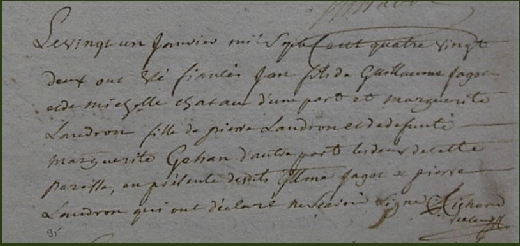 Le vingt un Janvier mil Sept Cent quatre vingt
deux ont été fiancés Jan fils de Guillaume fagot
et de michelle d'une part et marguerite
Landron fille de pierre Landron et de defunte
marguerite Gehan d'autre part les deux de cette
Paroisse, en présence desdits Glme fagot & pierre
Landron qui ont déclaré ne scavoir signer Richard